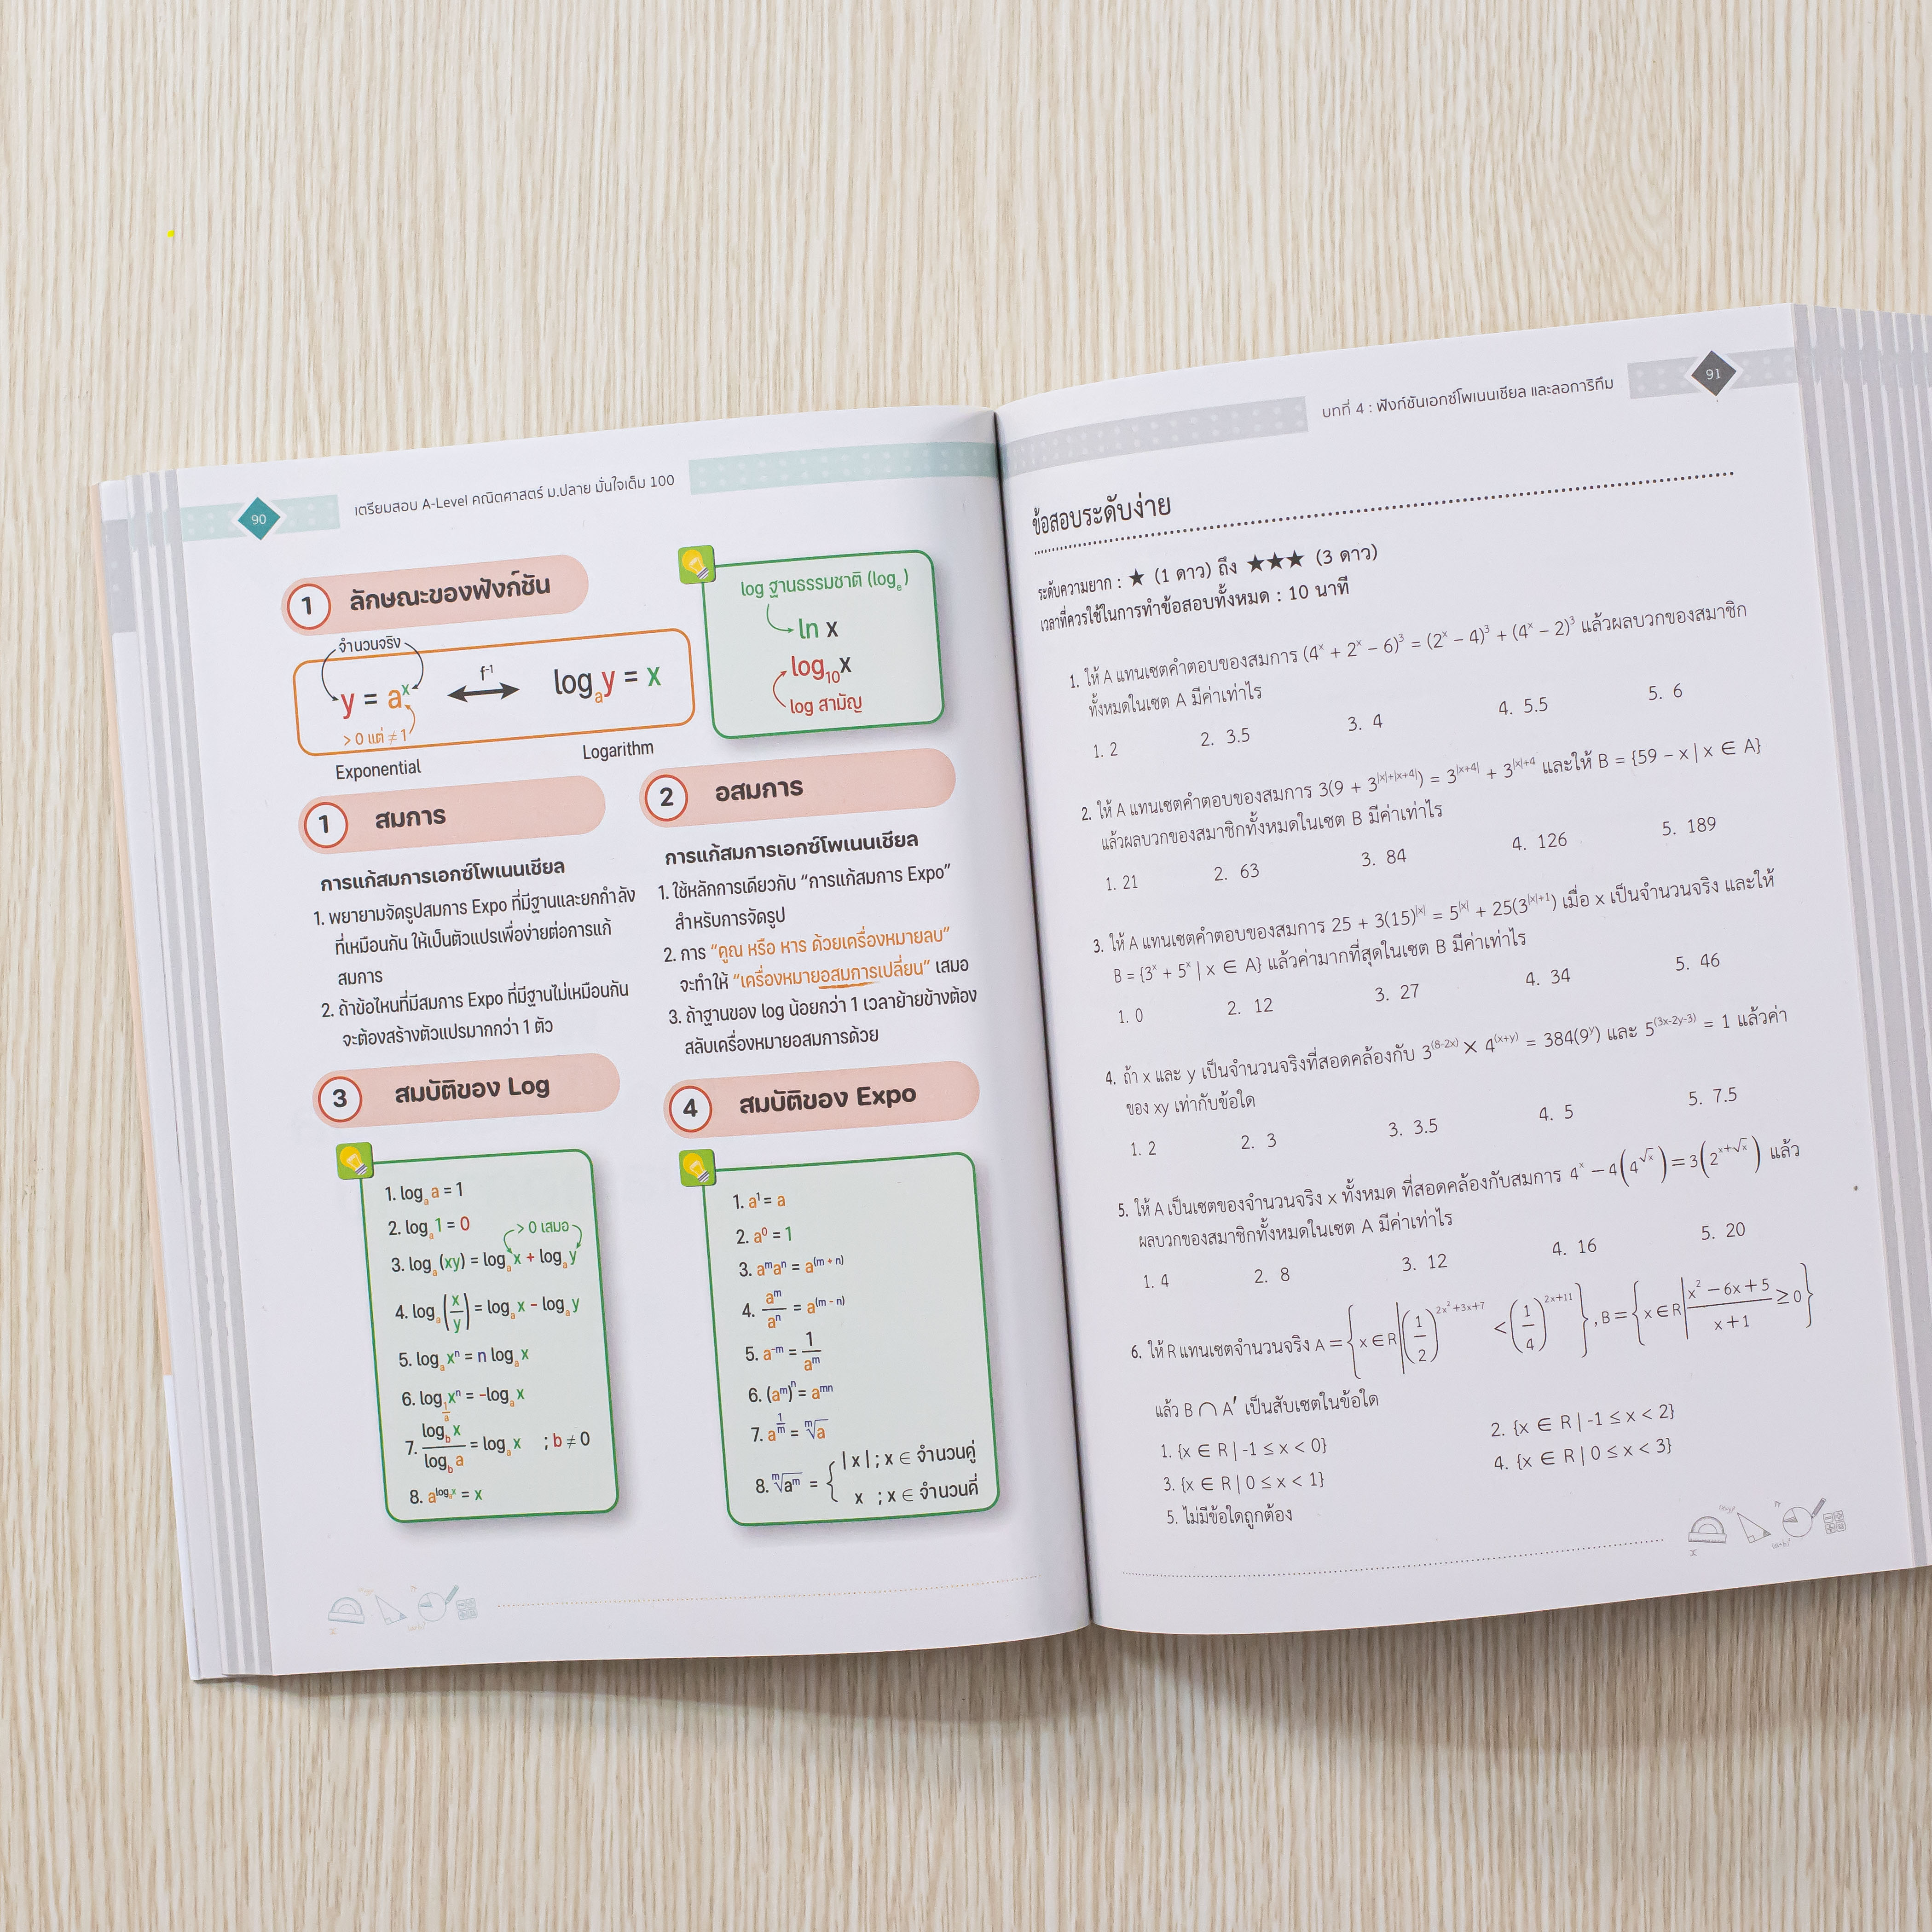 90
เตรียมสอบ A-Level คณิตศาสตร์ ม.ปลาย มั่นใจเต็ม 100
1 ลักษณะของฟังก์ชัน
จำนวนจริง
y = aˣ
f⁻¹
logₐy = x
> 0 แต่ ≠ 1
Exponential
Logarithm
log ฐานธรรมชาติ (logₑ)
ln x
log₁₀x
log สามัญ
1 สมการ
การแก้สมการเอกซ์โพเนนเชียล
1. พยายามจัดรูปสมการ Expo ที่มีฐานและยกกำลัง
ที่เหมือนกัน ให้เป็นตัวแปรเพื่อง่ายต่อการแก้
สมการ
2. ถ้าข้อไหนที่มีสมการ Expo ที่มีฐานไม่เหมือนกัน
จะต้องสร้างตัวแปรมากกว่า 1 ตัว
2 อสมการ
การแก้สมการเอกซ์โพเนนเชียล
1. ใช้หลักการเดียวกับ “การแก้สมการ Expo”
สำหรับการจัดรูป
2. การ “คูณ หรือ หาร ด้วยเครื่องหมายลบ”
จะทำให้ “เครื่องหมายอสมการเปลี่ยน” เสมอ
3. ถ้าฐานของ log น้อยกว่า 1 เวลาย้ายข้างต้อง
สลับเครื่องหมายอสมการด้วย
3 สมบัติของ Log
1. logₐa = 1
2. logₐ1 = 0
> 0 เสมอ
3. logₐ(xy) = logₐx + logₐy
4. logₐ(x/y) = logₐx - logₐy
5. logₐxⁿ = n logₐx
6. log_(1/a) xⁿ = -logₐx
7. log_b x / log_b a = logₐx ; b ≠ 0
8. a^(logₐx) = x
4 สมบัติของ Expo
1. a¹ = a
2. a⁰ = 1
3. aᵐaⁿ = a^(m + n)
4. aᵐ/aⁿ = a^(m - n)
5. a^-m = 1/aᵐ
6. (aᵐ)ⁿ = aᵐⁿ
7. a^(1/m) = ᵐ√a
8. ᵐ√aᵐ = { | x | ; x ∈ จำนวนคู่
x ; x ∈ จำนวนคี่
บทที่ 4 : ฟังก์ชันเอกซ์โพเนนเชียล และลอการิทึม
91
ข้อสอบระดับง่าย
ระดับความยาก : ★ (1 ดาว) ถึง ★★★ (3 ดาว)
เวลาที่ควรใช้ในการทำข้อสอบทั้งหมด : 10 นาที
1. ให้ A แทนเซตคำตอบของสมการ (4ˣ + 2ˣ – 6)³ = (2ˣ – 4)³ + (4ˣ – 2)³ แล้วผลบวกของสมาชิก
ทั้งหมดในเซต A มีค่าเท่าไร
1. 2 2. 3.5 3. 4 4. 5.5 5. 6
2. ให้ A แทนเซตคำตอบของสมการ 3(9 + 3^(|x|+|x+4|)) = 3^|x+4| + 3^(|x|+4) และให้ B = {59 – x | x ∈ A}
แล้วผลบวกของสมาชิกทั้งหมดในเซต B มีค่าเท่าไร
1. 21 2. 63 3. 84 4. 126 5. 189
3. ให้ A แทนเซตคำตอบของสมการ 25 + 3(15)^|x| = 5^|x| + 25(3^(|x|+1)) เมื่อ x เป็นจำนวนจริง และให้
B = {3ˣ + 5ˣ | x ∈ A} แล้วค่ามากที่สุดในเซต B มีค่าเท่าไร
1. 0 2. 12 3. 27 4. 34 5. 46
4. ถ้า x และ y เป็นจำนวนจริงที่สอดคล้องกับ 3^(8-2x) × 4^(x+y) = 384(9ʸ) และ 5^(3x-2y-3) = 1 แล้วค่า
ของ xy เท่ากับข้อใด
1. 2 2. 3 3. 3.5 4. 5 5. 7.5
5. ให้ A เป็นเซตของจำนวนจริง x ทั้งหมด ที่สอดคล้องกับสมการ 4ˣ – 4(4^√x) = 3(2^(x+√x)) แล้ว
ผลบวกของสมาชิกทั้งหมดในเซต A มีค่าเท่าไร
1. 4 2. 8 3. 12 4. 16 5. 20
6. ให้ R แทนเซตจำนวนจริง A = {x ∈ R | (1/2)^(2x²+3x+7) < (1/4)^(2x+11)}, B = {x ∈ R | (x² – 6x + 5)/(x + 1) ≥ 0}
แล้ว B ∩ A′ เป็นสับเซตในข้อใด
1. {x ∈ R | -1 ≤ x < 0} 2. {x ∈ R | -1 ≤ x < 2}
3. {x ∈ R | 0 ≤ x < 1} 4. {x ∈ R | 0 ≤ x < 3}
5. ไม่มีข้อใดถูกต้อง